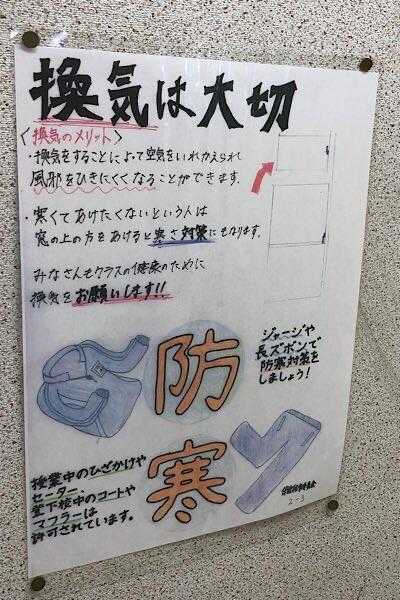 換気は大切
〈換気のメリット〉
・換気をすることによって空気をいれかえられ
風邪をひきにくくなることができます。
・寒くてあけたくないという人は
窓の上の方をあけると寒さ対策にもなります。
みなさんもクラスの健康のために
換気をお願いします!!
ジャージや
長ズボンで
防寒対策を
しましょう!
防
寒
授業中のひざかけや
セーター、
登下校中のコートや
マフラーは
許可されています。
2-3